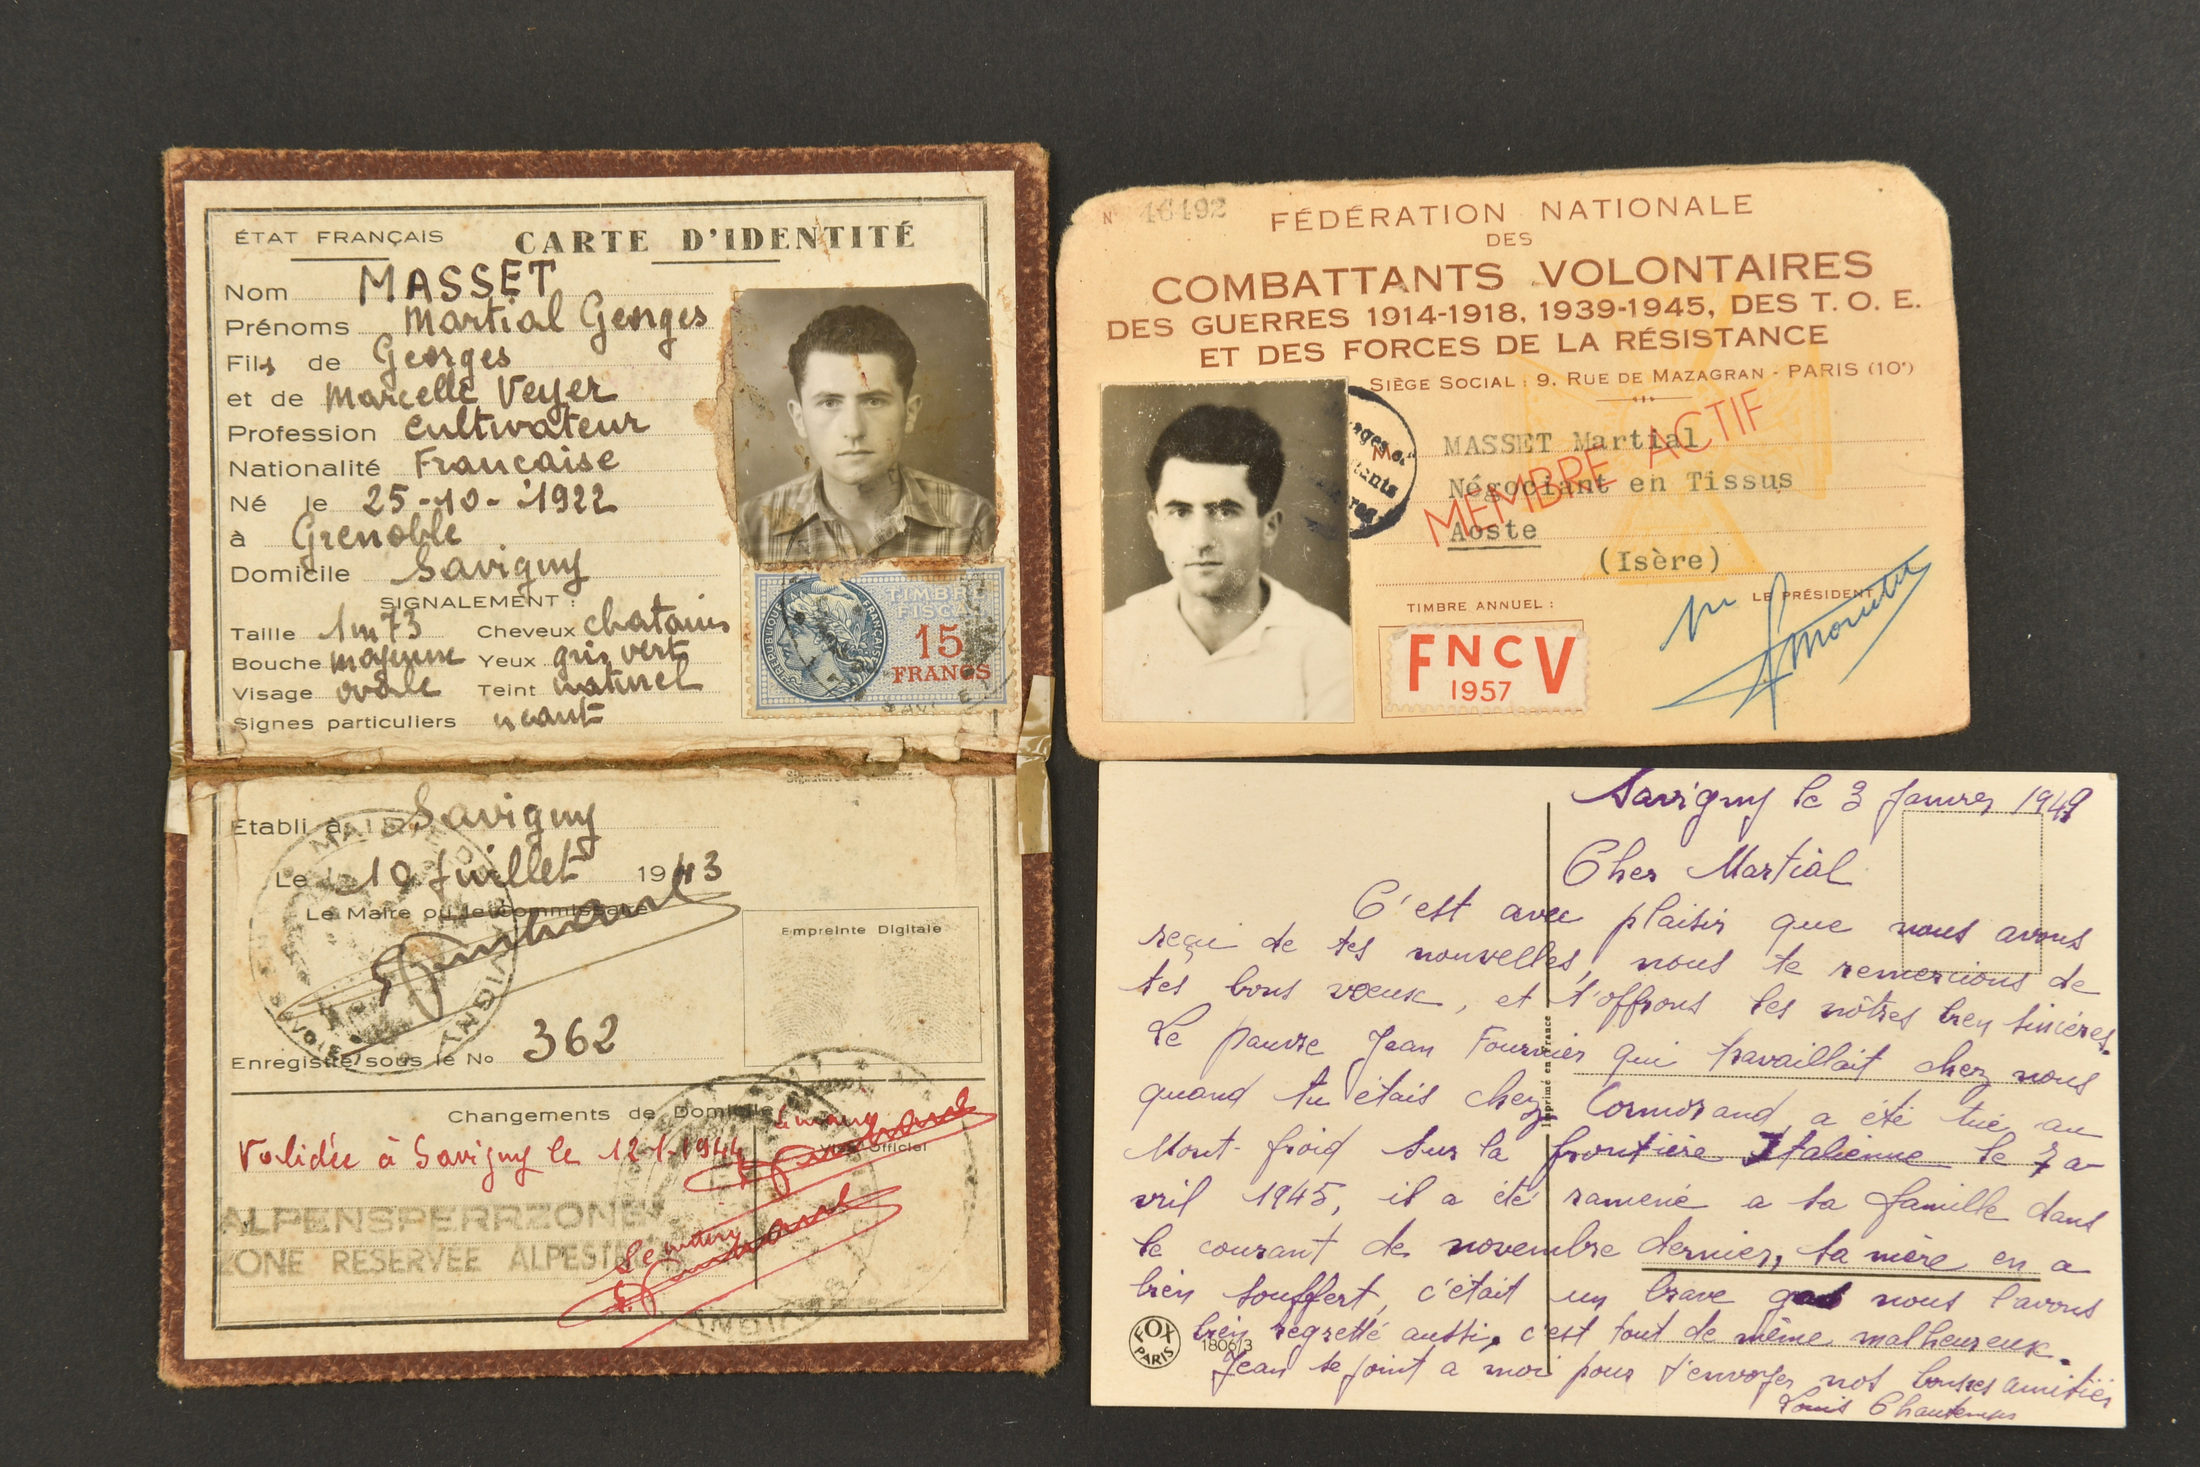 ÉTAT FRANÇAIS
CARTE D'IDENTITÉ
Nom MASSET
Prénoms Martial Georges
Fils de Georges
et de Marcelle Veyer
Profession Cultivateur
Nationalité Française
Né le 25-10-1922
à Grenoble
Domicile Savigny
SIGNALEMENT :
Taille 1m73 Cheveux chatains
Bouche moyenne Yeux gris vert
Visage ovale Teint naturel
Signes particuliers néant
RÉPUBLIQUE FRANÇAISE
TIMBRE
FISCAL
15
FRANCS
Etabli à Savigny
Le 10 Juillet 1943
Le Maire ou le Commissaire
Empreinte Digitale
Enregistré sous le No 362
Changements de Domicile
Visa Officiel
Validée à Savigny le 12-1-1944
ALPENSPERRZONE
ZONE RESERVEE ALPESTRE
No 46492
FÉDÉRATION NATIONALE
DES
COMBATTANTS VOLONTAIRES
DES GUERRES 1914-1918, 1939-1945, DES T. O. E.
ET DES FORCES DE LA RÉSISTANCE
SIÈGE SOCIAL : 9, RUE DE MAZAGRAN - PARIS (10e)
MASSET Martial
Négociant en Tissus
Aoste
(Isère)
MEMBRE ACTIF
LE PRÉSIDENT
TIMBRE ANNUEL :
FNCV
1957
Savigny le 3 Janvier 1949
Cher Martial
C'est avec plaisir que nous avons
reçu de tes nouvelles, nous te remercions de
tes bons vœux, et t'offrons les nôtres bien sincères.
Le pauvre Jean Fournier qui travaillait chez nous
quand tu étais chez Cormorand, a été tué au
Mont-froid sur la frontière Italienne le 7 a-
vril 1945, il a été ramené a sa famille dans
le courant de novembre dernier, sa mère en a
bien souffert, c'était un brave gas nous l'avons
bien regretté aussi, c'est tout de même malheureux.
Jean se joint a moi pour t'envoyer nos bonnes amitiés
Louis Chautemps
Imprimé en France
FOX
PARIS
1806/3